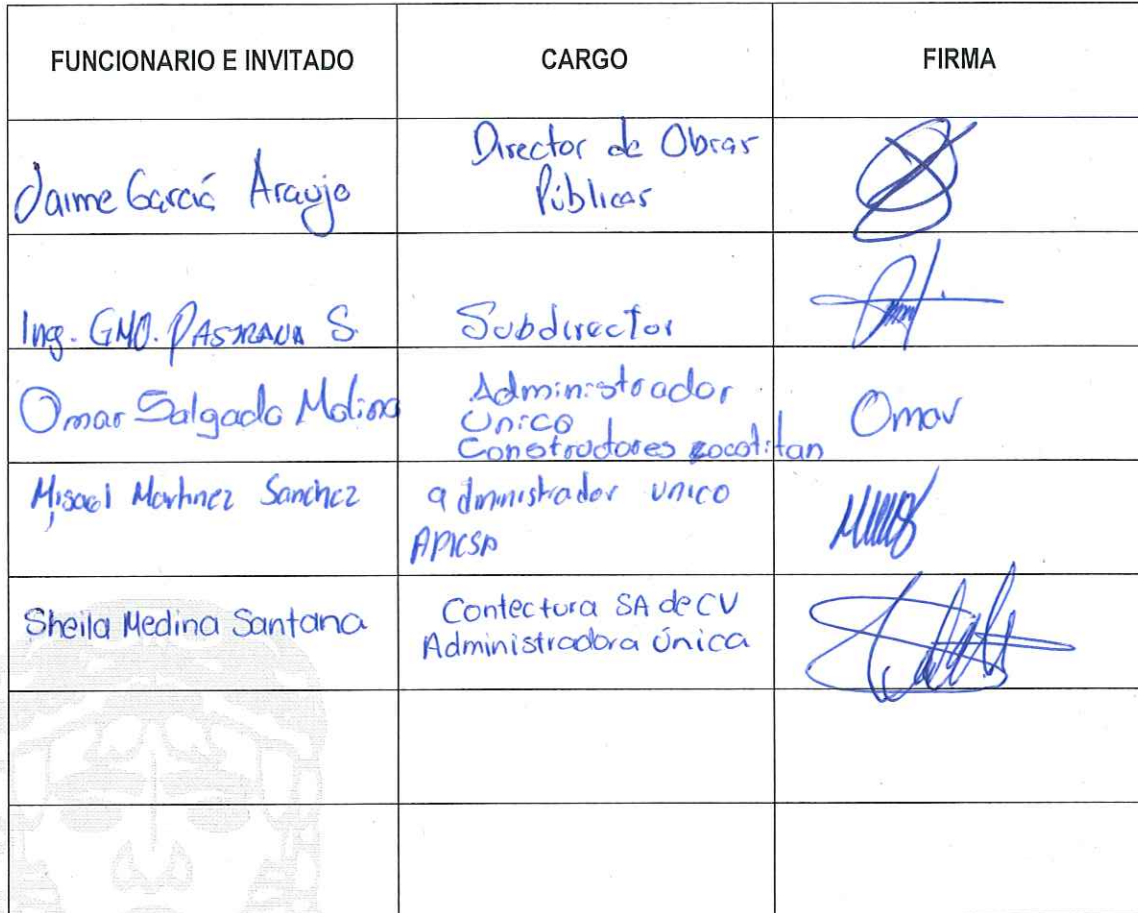 FUNCIONARIO E INVITADO CARGO FIRMA
Jaime García Araujo
Director de Obras
Públicas
Ing. GMO. PASTRANA S.
Subdirector
Omar Salgado Molina
Administrador
Unico
Constructores zocotitan
Omar
Misael Martinez Sanchez
administrador unico
APICSA
Sheila Medina Santana
Contectura SA de CV
Administradora única